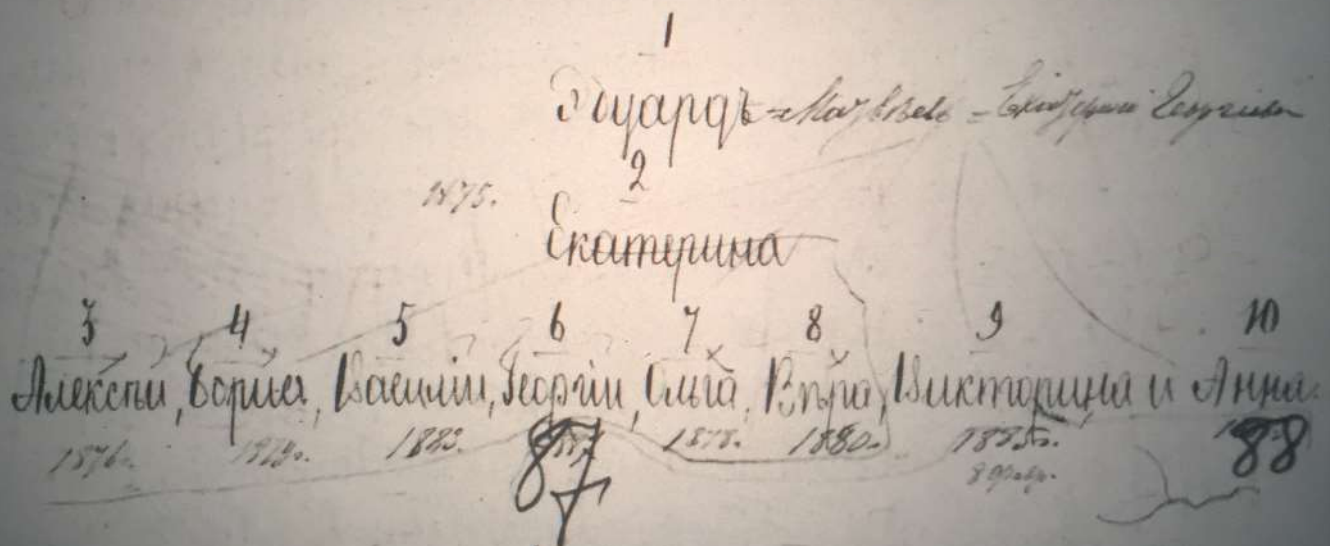 1
Эдуардъ = Матвѣевъ = Екатерина Георгіевн
2
1875.
Екатерина
3 4 5 6 7 8 9 10
Алексѣй, Борисъ, Василій, Георгій, Ольга, Вѣра, Викторина и Анна.
1876. 1883. 87 1878. 1880. 1885. 88
8 февр.